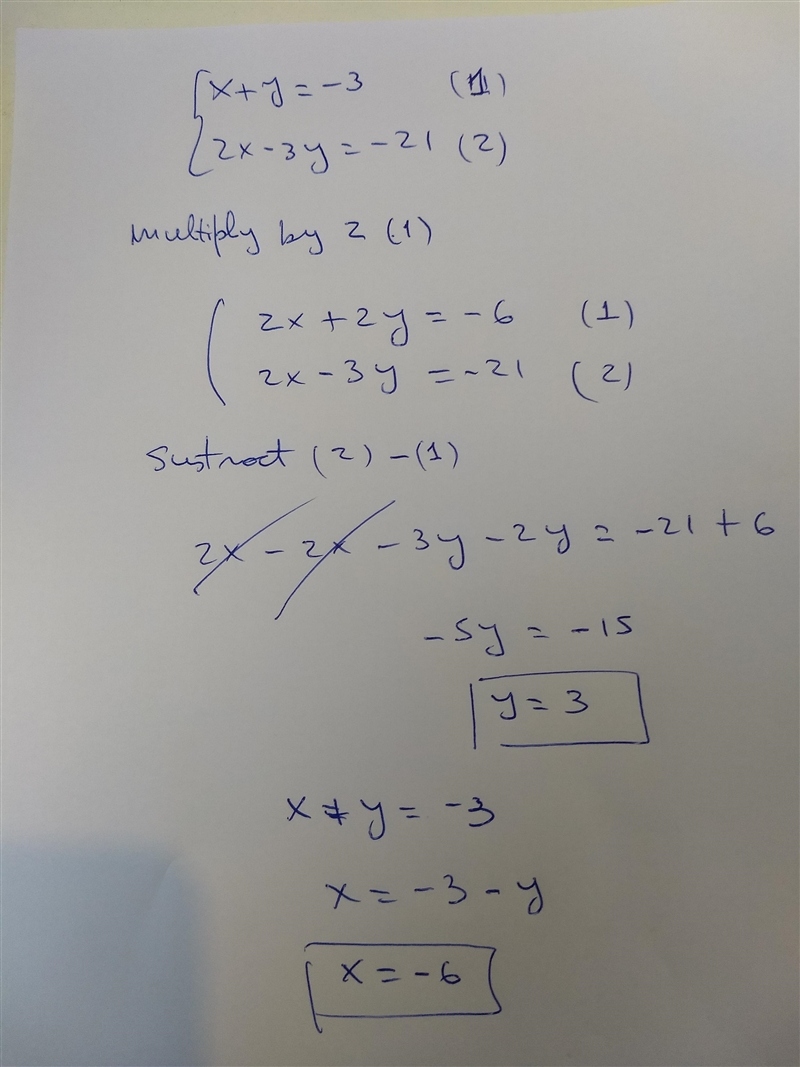 x+y=-3 (1)
2x-3y=-21 (2)
Multiply by 2 (1)
2x+2y=-6 (1)
2x-3y=-21 (2)
Sustract (2)-(1)
2x-2x-3y-2y=-21+6
-5y=-15
y=3
x+y=-3
x=-3-y
x=-6